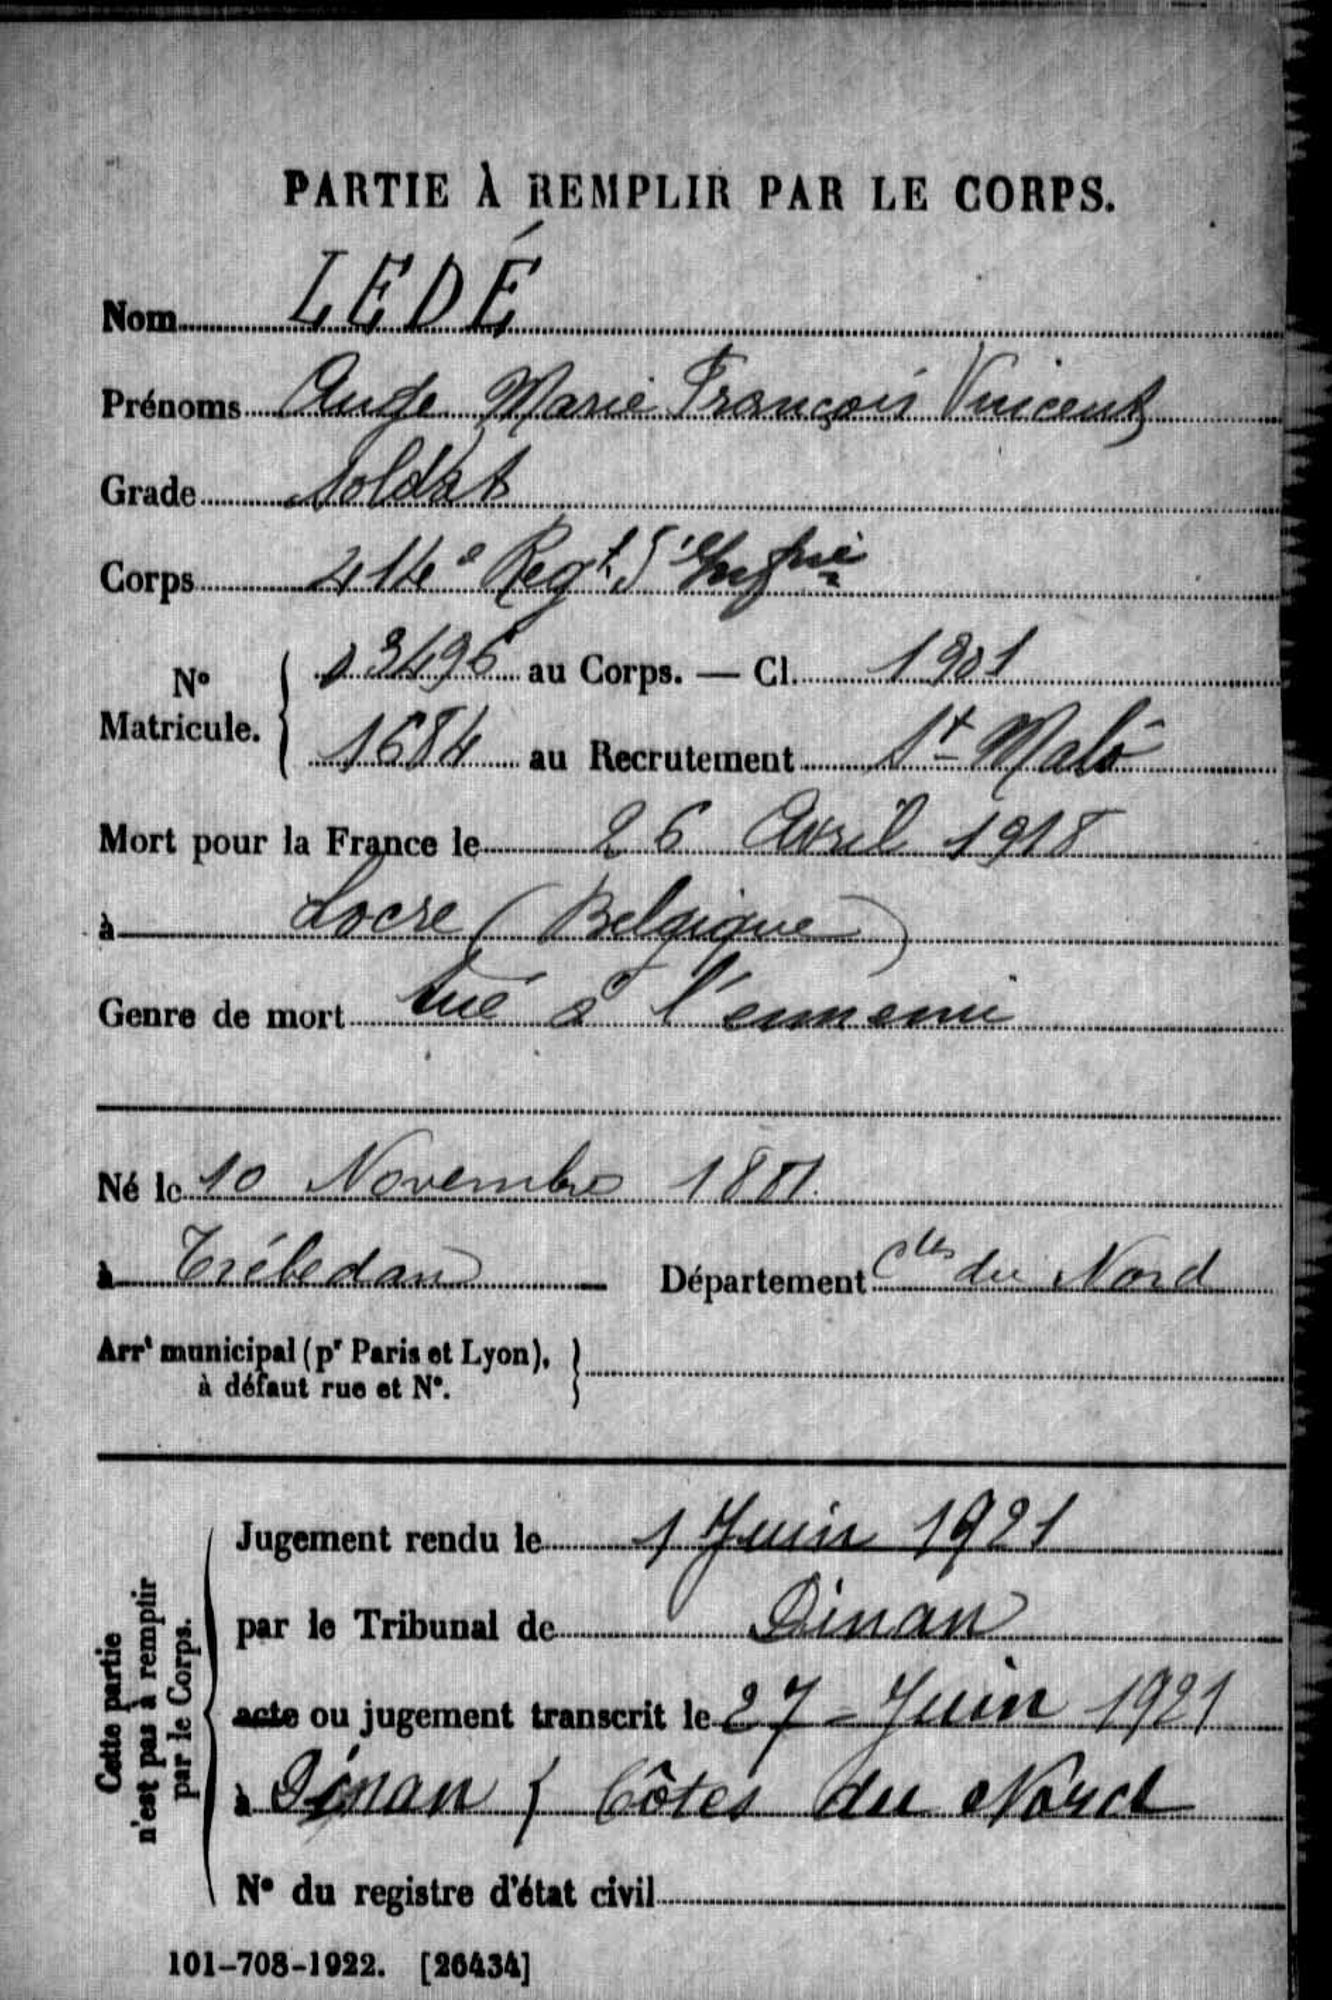 PARTIE À REMPLIR PAR LE CORPS.
Nom LEDÉ
Prénoms Ange Marie François Vincent
Grade Soldat
Corps 414e Regt d'Infrie
No Matricule. 03496 au Corps. — Cl. 1901
1684 au Recrutement St Malo
Mort pour la France le 26 Avril 1918
à Locre (Belgique)
Genre de mort tué à l'ennemi
Né le 10 Novembre 1881
à Trébedan Département Ctes du Nord
Arrt municipal (pr Paris et Lyon),
à défaut rue et No.
Cette partie
n'est pas à remplir
par le Corps.
Jugement rendu le 1 Juin 1921
par le Tribunal de Dinan
acte ou jugement transcrit le 27 - Juin 1921
à Dinan ( Côtes du Nord
No du registre d'état civil
101-708-1922. [26434]